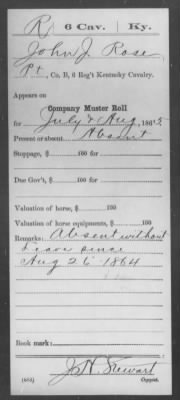 R 6 Cav. Ky.
John J. Rose
Pt, Co. B, 6 Reg't Kentucky Cavalry.
Appears on
Company Muster Roll
for July & Aug, 186
Present or absent Absent
Stoppage, $ 100 for
Due Gov't, $ 100 for
Valuation of horse, $ 100
Valuation of horse equipments, $ 100
Remarks: Absent without
Leave since
Aug 26" 1864
Book mark:
J. H. Stewart
(858) Copyist.